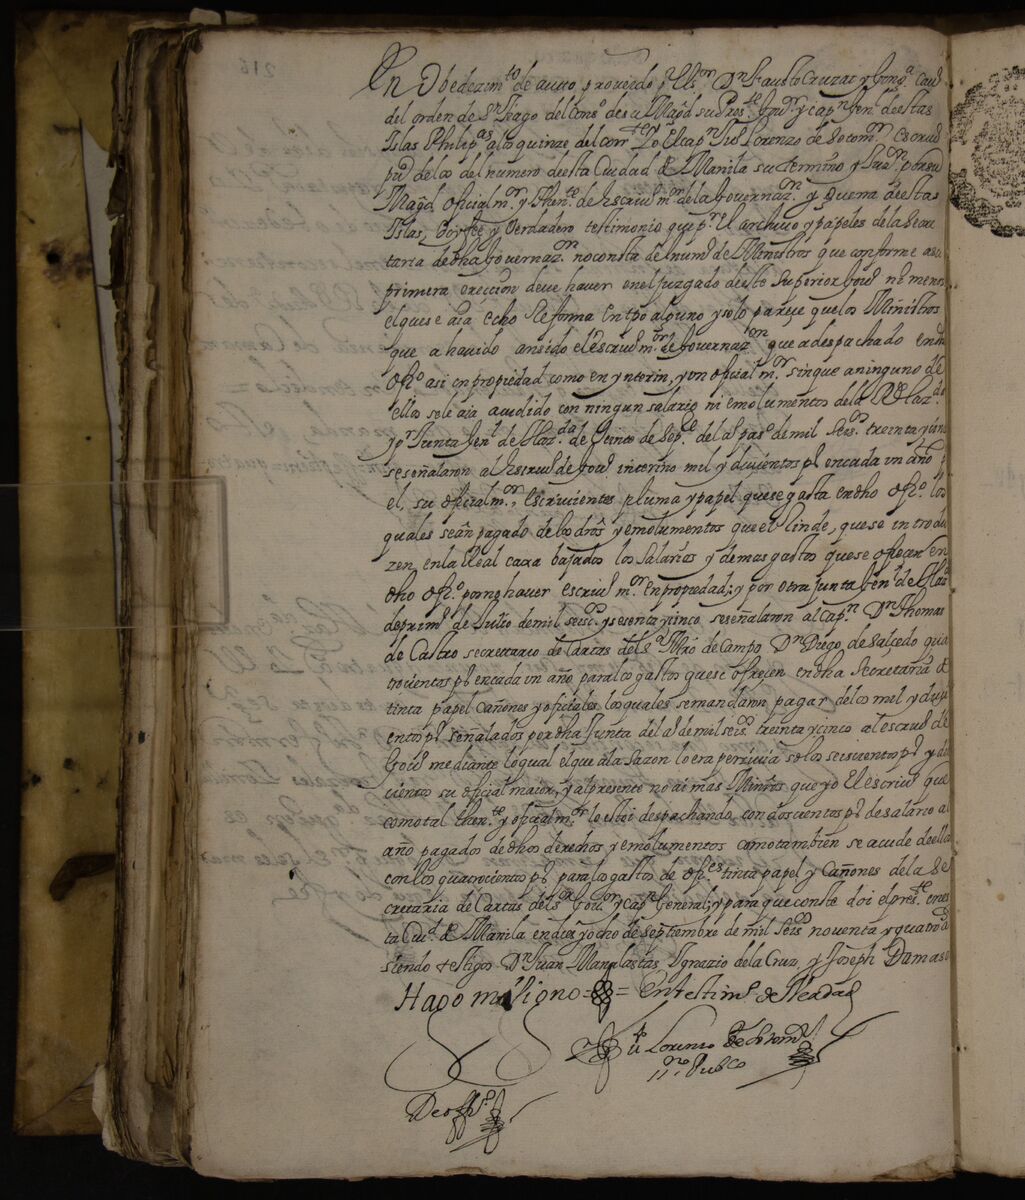 En Obedezim.to de auto proveido p.r el s.or D.n Fausto Cruzat y Gong.a Cau.o
del orden de S.ntiago del Cons.o de su Mag.d su Pres.te Gou.r y cap.n Gen.l de estas
Islas Philip.as a los quinze del corr.te Yo El cap.n Lorenzo de Sotom.or escriu.o
pu.co de los del numero de esta Ciudad de Manila su termino y Jur.on por su
Mag.d oficial m.or y Then.te de Escriu.o m.or de la Governaz.on y Guerra de estas
Islas, Doy fee y Verdadero testimonio que p.r el archivo y papeles de la Secre
taria de dha Governaz.on no consta del num.o de Ministros que conforme a su
primera ereccion deve haver en el Juzgado de este Superior Gou.o ni menos
el que se aia echo Reforma en tpo alguno y solo pareçe que los Ministros
que a havido an sido el Escriu.o m.or de Governaz.on que a despachado en dho
ofi.o asi en propiedad como en ynterin, y un oficial m.or sin que a ninguno de
ellos se le aia acudido con ningun salario ni emolumentos de la R.l Haz.da
y p.r Junta Gen.l de Haz.da de Veinte de Sep.e del a.o pas.o de mil seis.os treinta y cinco
se señalaron al Escriu.o de Gou.o interino mil y duçientos p.s en cada un año p.a
el, su oficial m.or, escriuientes pluma y papel que se gasta en dho ofi.o los
quales sean pagado de los dros y emolumentos que el Rinde, que se introdu
zen en la Real caxa bajados los salarios y demas gastos que se ofreçen en
dho ofi.o por no haver escriu.o m.or en propiedad; y por otra Junta Gen.l de Haz.da
de prim.o de Julio de mil seisc.os y sesenta y cinco se señalaron al Cap.n D.n Thomas
de Castro secretario de Cartas del S.r Mrō de Campo D.n Diego de Salçedo qua
trocientos p.s en cada un año para los gastos que se ofreçen en dha Secretaria de
tinta papel Cañones y ofiçiales, los quales se mandaron pagar de los mil y duçi
entos p.s señalados por dha Junta del a.o de mil seis.os treinta y cinco al escriu.o de
Gou.o mediante lo qual el que a la sazon lo era perçiuia solos seiscientos p.s y du
cientos su ofiçial maior, y al presente no ai mas Mintros que yo El escriu.o que
como tal then.te y ofiçial m.or lo estoi despachando, con dosçientos p.s de salario al
año pagados de dhos derechos y emolumentos como tambien se acude de ellos
con los quatroçientos p.s para los gastos de ofi.es tinta papel y Cañones de la Se
cretaria de Cartas del s.or Gou.or y cap.n General; y para que conste doi el pres.te en es
ta Ciu.d de Manila en diez y ocho de septiembre de mil seis.os noventa y quatro a.s
siendo testigos D.n Juan Manalastas, Ignazio de la Cruz, y Joseph Damaso
Hago mi signo = = en testim.o de Verdad
Lorenzo de Sotom.or
ss.no Pubco